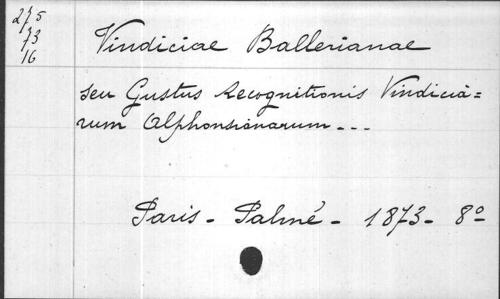 275
73
16
Vindiciae Ballerianae
seu Gustus Recognitionis Vindicia=
rum Alphonsianarum ---
Paris - Palmé - 1873 - 8º